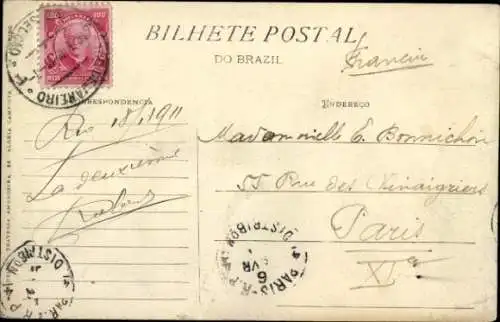 BILHETE POSTAL
DO BRAZIL
Francia
CORRESPONDENCIA
ENDEREÇO
Rio 18/1 1911
La deuxième
Mademoiselle E. Bonnichon
55 Rue des Vinaigriers
Paris
XIe
100 100
JANEIRO
PARIS
DISTRIBON
6
VR
PARIS
DISTRIBON